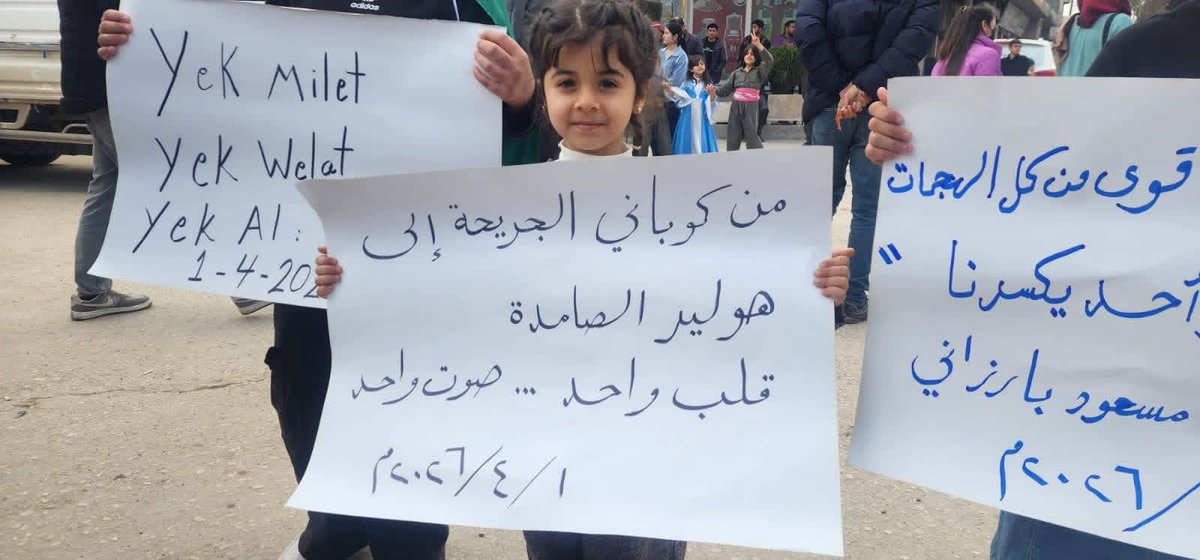 adidas
Yek Milet
Yek Welat
Yek Al:
1-4-202
من كوباني الجريحة إلى
هولير الصامدة
قلب واحد ... صوت واحد
٢٠٢٦/٤/١م
قوى من كل الهجمات
أحد يكسرنا "
مسعود بارزاني
٢٠٢٦م/